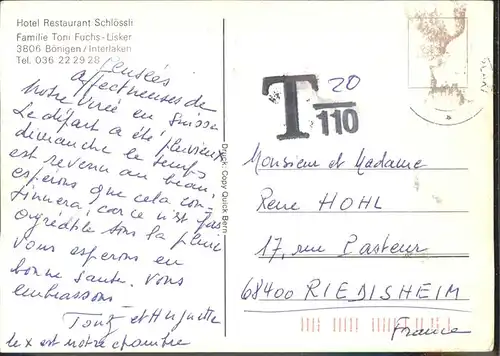 Hotel Restaurant Schlössli
Familie Toni Fuchs-Lisker
3806 Bönigen/Interlaken
Tel. 036 22 29 28
Pensées
affectueuses de
notre virée en Suisse
Le départ a été pluvieux
dimanche le temps
est revenu au beau.
espérons que cela con-
tinuera, car ce n'est pas
agréable sous la pluie
Vous esperons en
bonne Santé. Vous
embrassons
et Huguette
le x est notre chambre
Druck: Copy Quick Bern
T 20
110
Monsieur et Madame
René HOHL
17, rue Pasteur
68400 RIEDISHEIM
France